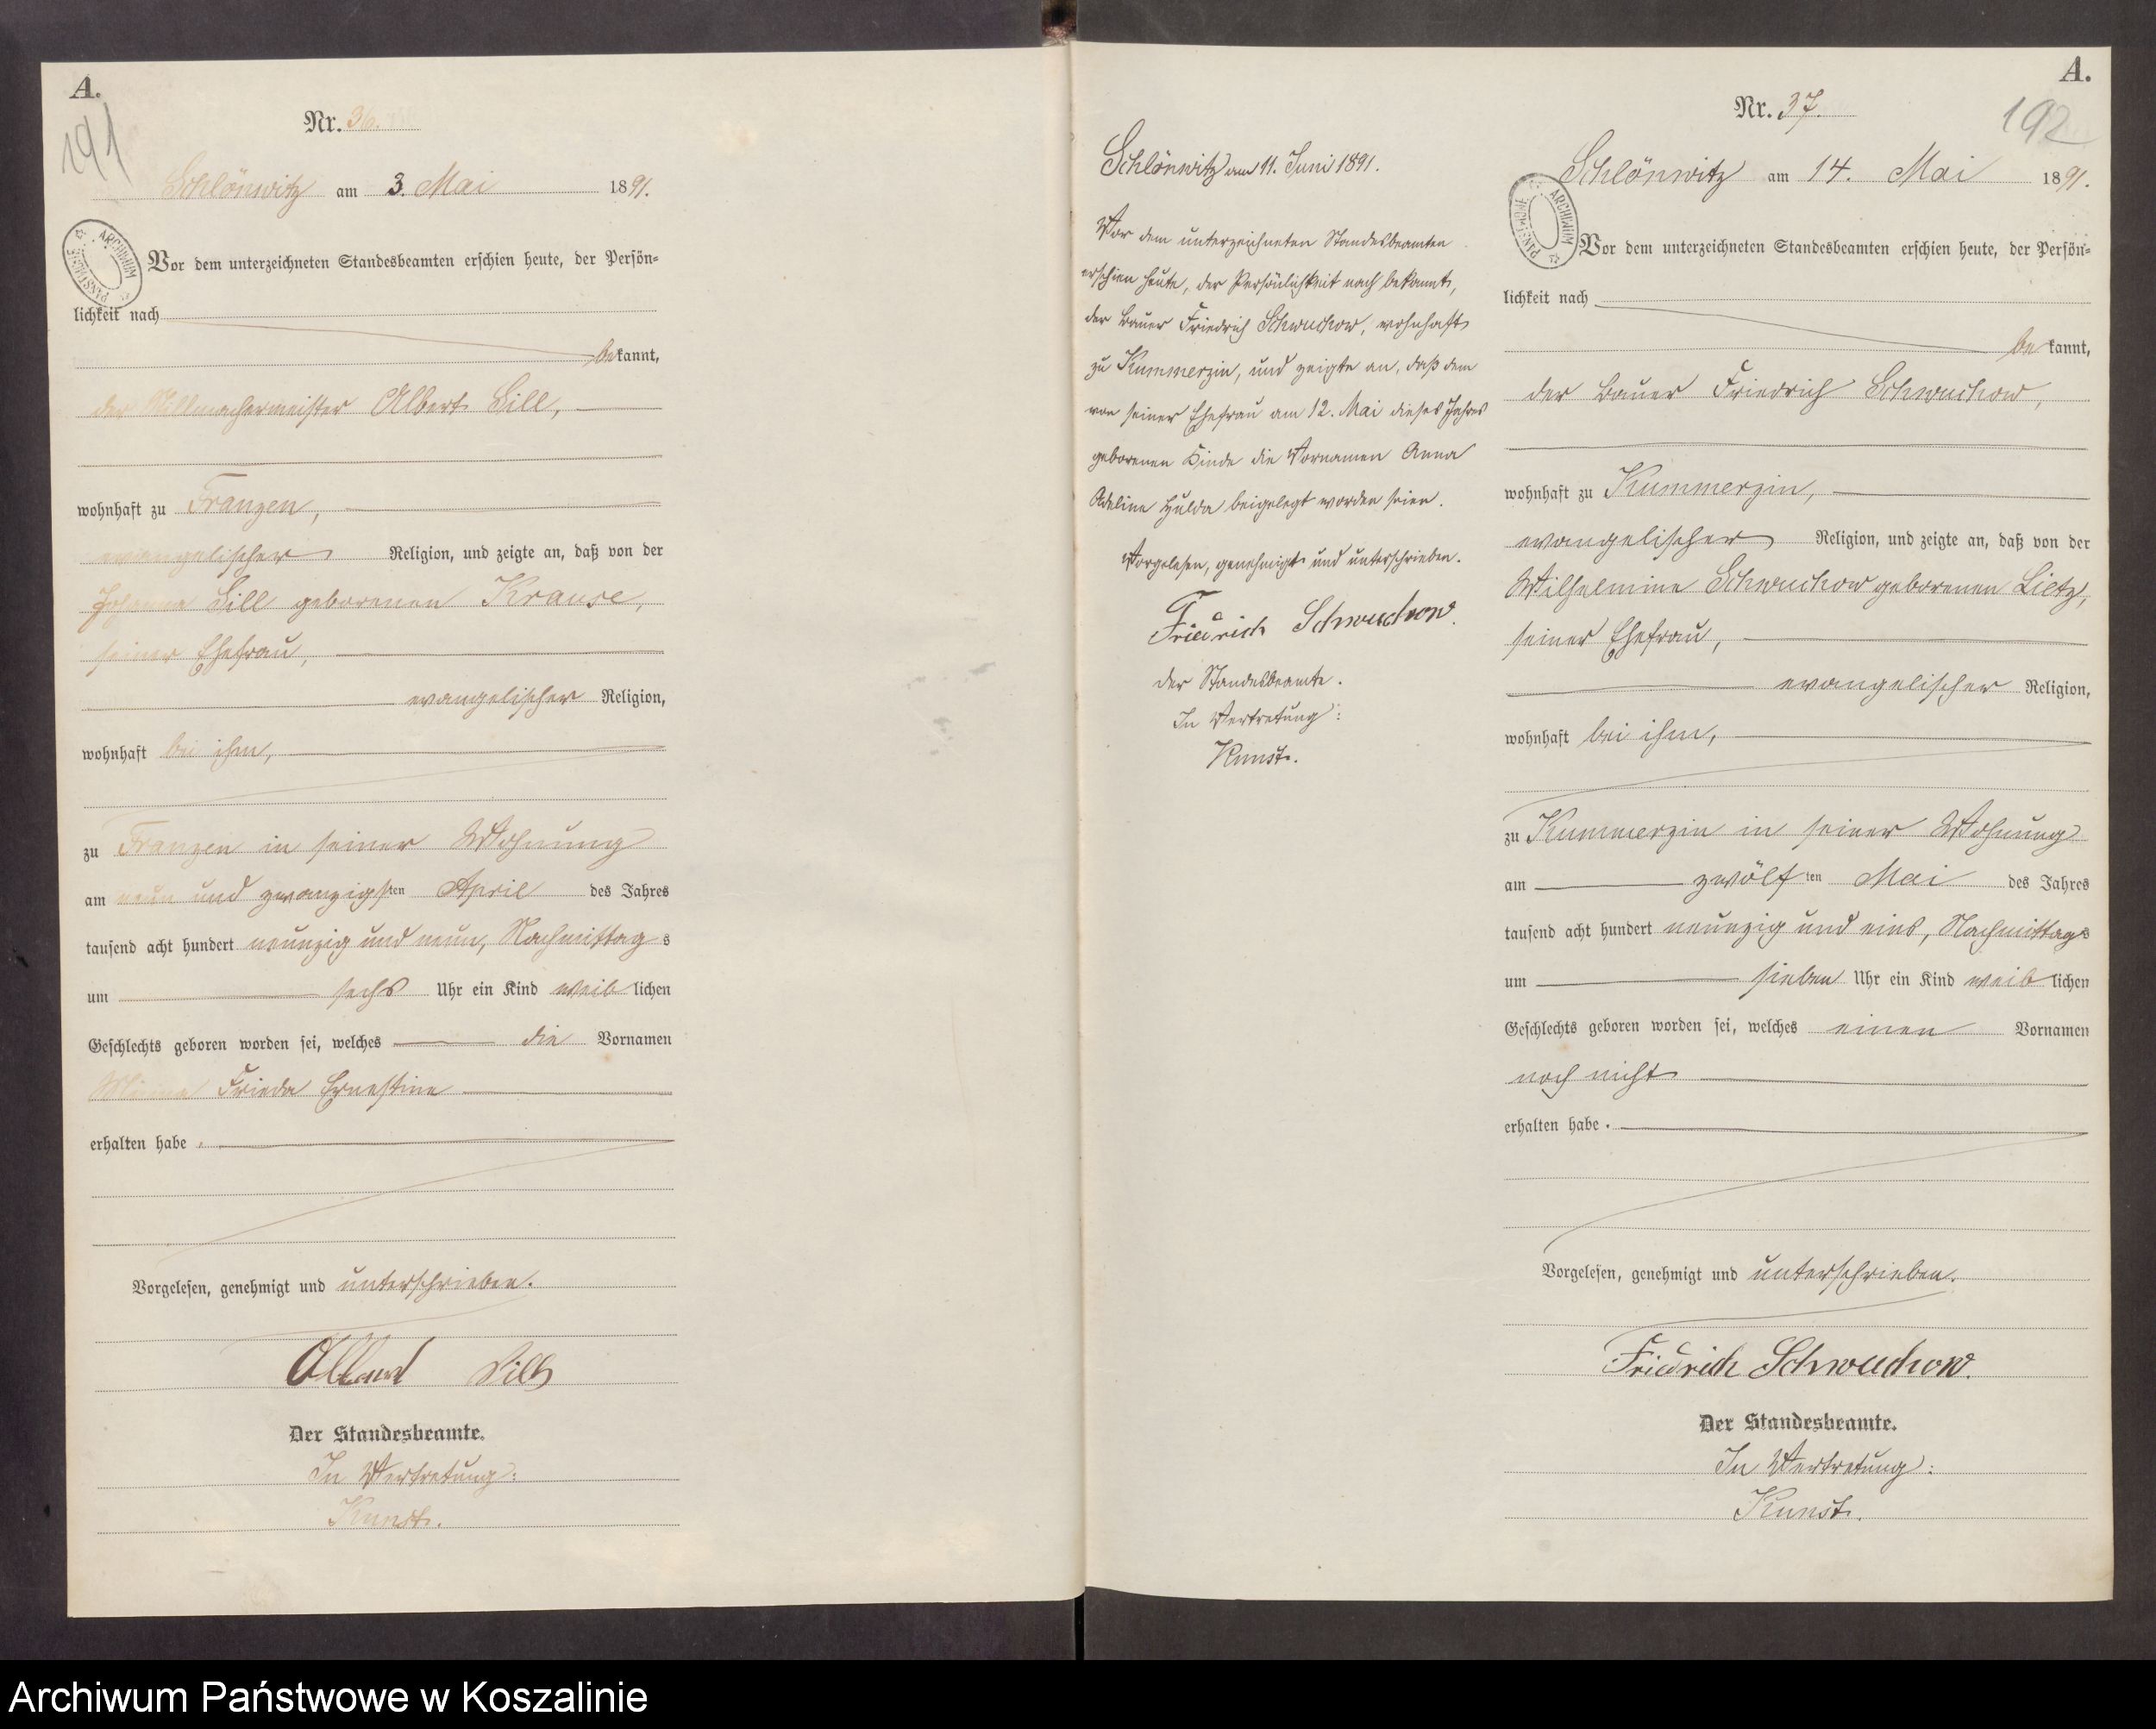 A.
191
Nr. 36.
Schlönwitz am 3. Mai 1891.
Vor dem unterzeichneten Standesbeamten erschien heute, der Persön-
lichkeit nach
bekannt,
der Albert Sill,
wohnhaft zu Franzen,
evangelischer Religion, und zeigte an, daß von der
Johanna Sill geborenen Krause,
seiner Ehefrau,
evangelischer Religion,
wohnhaft bei ihm,
zu Franzen in seiner Wohnung
am neun und zwanzigsten April des Jahres
tausend acht hundert neunzig und neun, Nachmittags
um sechs Uhr ein Kind weiblichen
Geschlechts geboren worden sei, welches die Vornamen
Frieda Ernestine
erhalten habe.
Vorgelesen, genehmigt und unterschrieben.
Albert Sill
Der Standesbeamte.
In Vertretung:
Kunst.
ARCHIWUM PAŃSTWOWE
Schlönwitz am 11. Juni 1891.
Vor dem unterzeichneten Standesbeamten
erschien heute, der Persönlichkeit nach bekannt,
der Bauer Friedrich Schwuchow, wohnhaft
zu Kummerzin, und zeigte an, daß dem
von seiner Ehefrau am 12. Mai dieses Jahres
geborenen Kinde die Vornamen Anna
Adeline Hulda beigelegt worden seien.
Vorgelesen, genehmigt und unterschrieben.
Friedrich Schwuchow.
Der Standesbeamte.
In Vertretung:
Kunst.
A.
192
Nr. 37.
Schlönwitz am 14. Mai 1891.
Vor dem unterzeichneten Standesbeamten erschien heute, der Persön-
lichkeit nach
bekannt,
der Bauer Friedrich Schwuchow,
wohnhaft zu Kummerzin,
evangelischer Religion, und zeigte an, daß von der
Wilhelmine Schwuchow geborenen Lietz,
seiner Ehefrau,
evangelischer Religion,
wohnhaft bei ihm,
zu Kummerzin in seiner Wohnung
am zwölften Mai des Jahres
tausend acht hundert neunzig und eins, Nachmittags
um sieben Uhr ein Kind weiblichen
Geschlechts geboren worden sei, welches einen Vornamen
noch nicht
erhalten habe.
Vorgelesen, genehmigt und unterschrieben.
Friedrich Schwuchow.
Der Standesbeamte.
In Vertretung:
Kunst.
ARCHIWUM PAŃSTWOWE
Archiwum Państwowe w Koszalinie